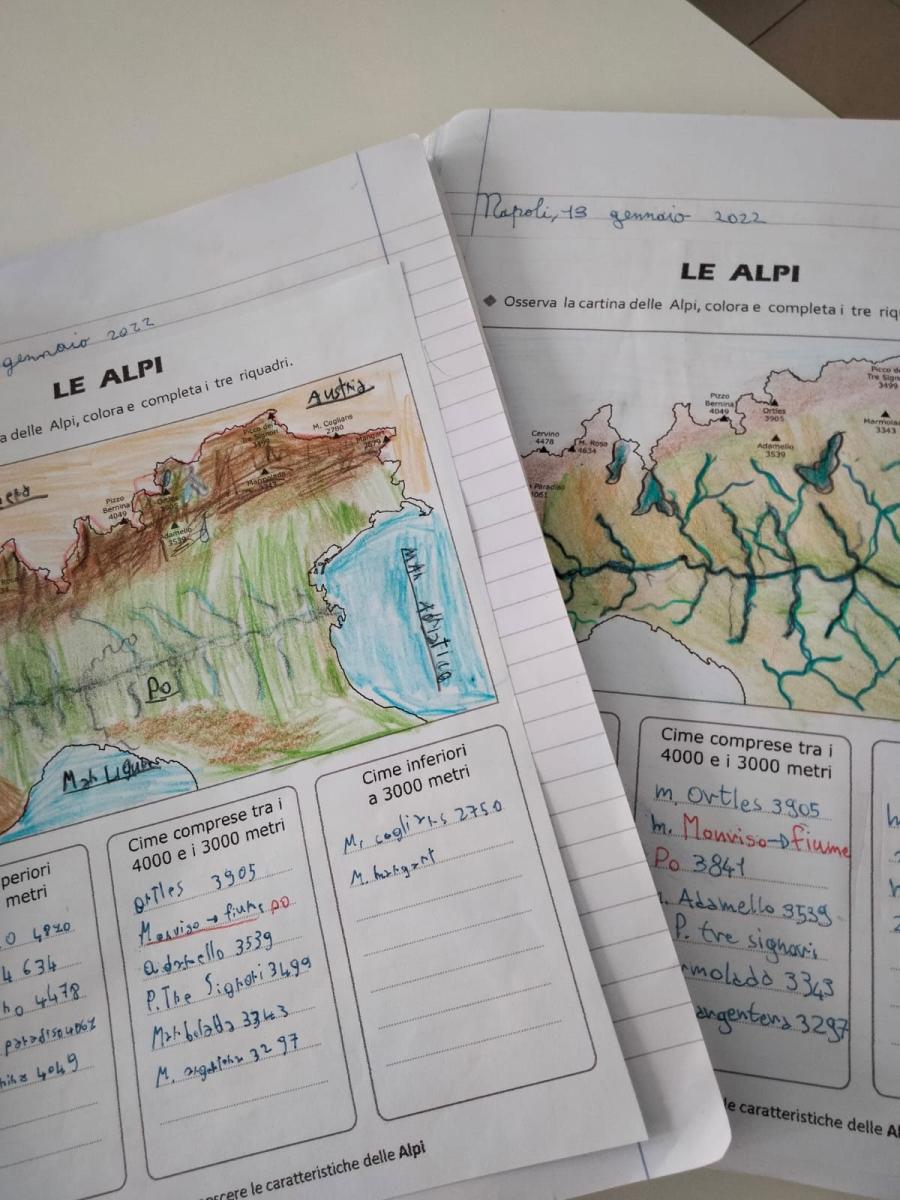 gennaio 2022
LE ALPI
a delle Alpi, colora e completa i tre riquadri.
Austria
M. Coglians
2780
Picco dei
Tre Signori
3499
Pizzo
Bernina
4049
Adamello
3539
Mar Adriatico
Po
Mar Ligure
periori
metri
4 634
4478
paradiso 4061
4049
Cime comprese tra i
4000 e i 3000 metri
ortles 3905
Monviso → fiume po
adamello 3539
P. The Signori 3499
3343
M. 3297
Cime inferiori
a 3000 metri
2750
M.
scere le caratteristiche delle Alpi
Napoli, 13 gennaio 2022
LE ALPI
Osserva la cartina delle Alpi, colora e completa i tre riqu
Picco de
Tre Sign
3499
Pizzo
Bernina
4049
Ortles
3905
Marmola
3343
Cervino
4478
M. Rosa
4634
Adamello
3539
Paradiso
4061
Cime comprese tra i
4000 e i 3000 metri
m. Ortles 3905
m. Monviso→fiume
Po 3841
. Adamello 3539
P. tre signori
rmolada 3343
argentera 3297
le caratteristiche delle Al